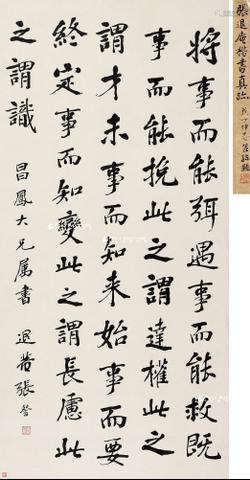 張退庵楷書真跡
將事而能弭遇事而能救既
事而能挽此之謂達權此之
謂才未事而知來始事而要
終定事而知變此之謂長慮此
之謂識
昌鳳大兄属書 退菴張詧